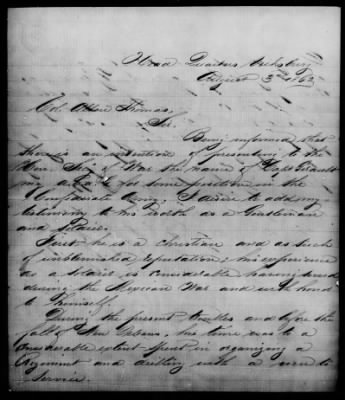 Head Quarters Vicksburg
August 3rd 1862
Col. Allen Thomas,
Sir.
Being informed that
there is an intention of presenting to the
Hon. Sec'y of War the name of Capt
for some position in the
Confederate Army, I desire to add my
testimony to his worth as a Gentleman
and Soldier.
First he is a christian and as such
of unblemished reputation; his experience
as a Soldier is considerable having served
during the Mexican War and with honor
to himself.
During the present troubles and before the
fall of New Orleans, his time was to a
considerable extent spent in organizing a
Regiment and drilling with a view to
service.